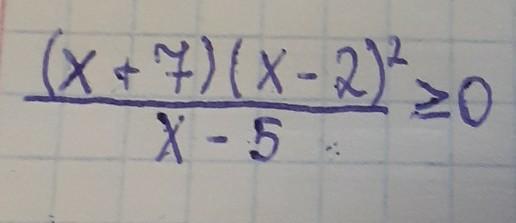 (x + 7)(x - 2)²
x - 5
≥ 0